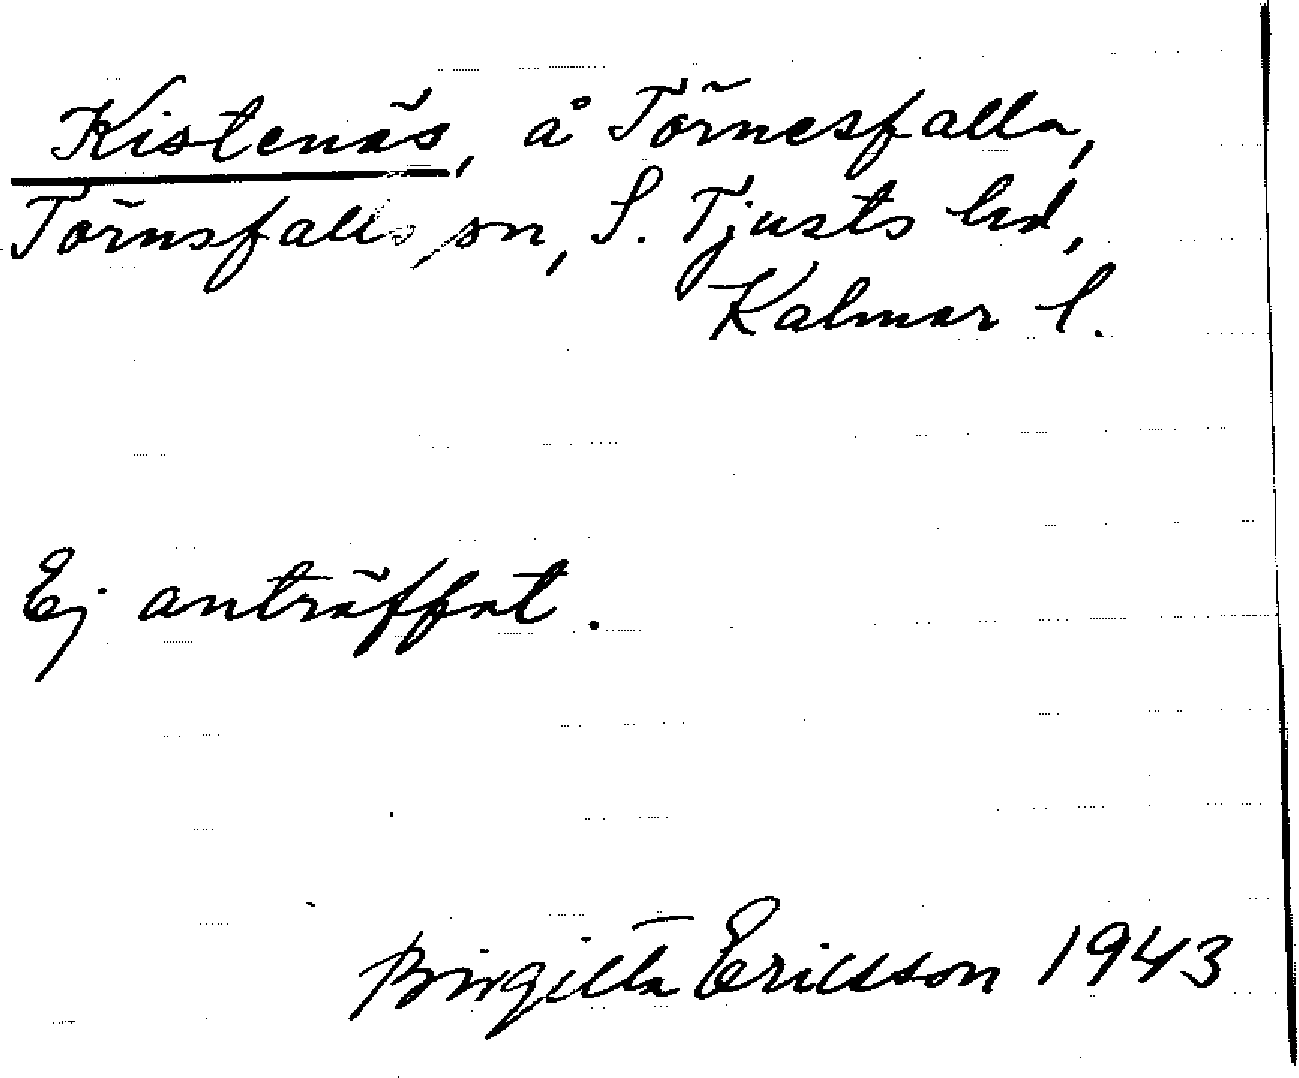 Kistenäs, å Törnesfalla,
Törnsfalls sn, S. Tjusts hd,
Kalmar l.
Ej anträffat.
Birgitta Ericsson 1943